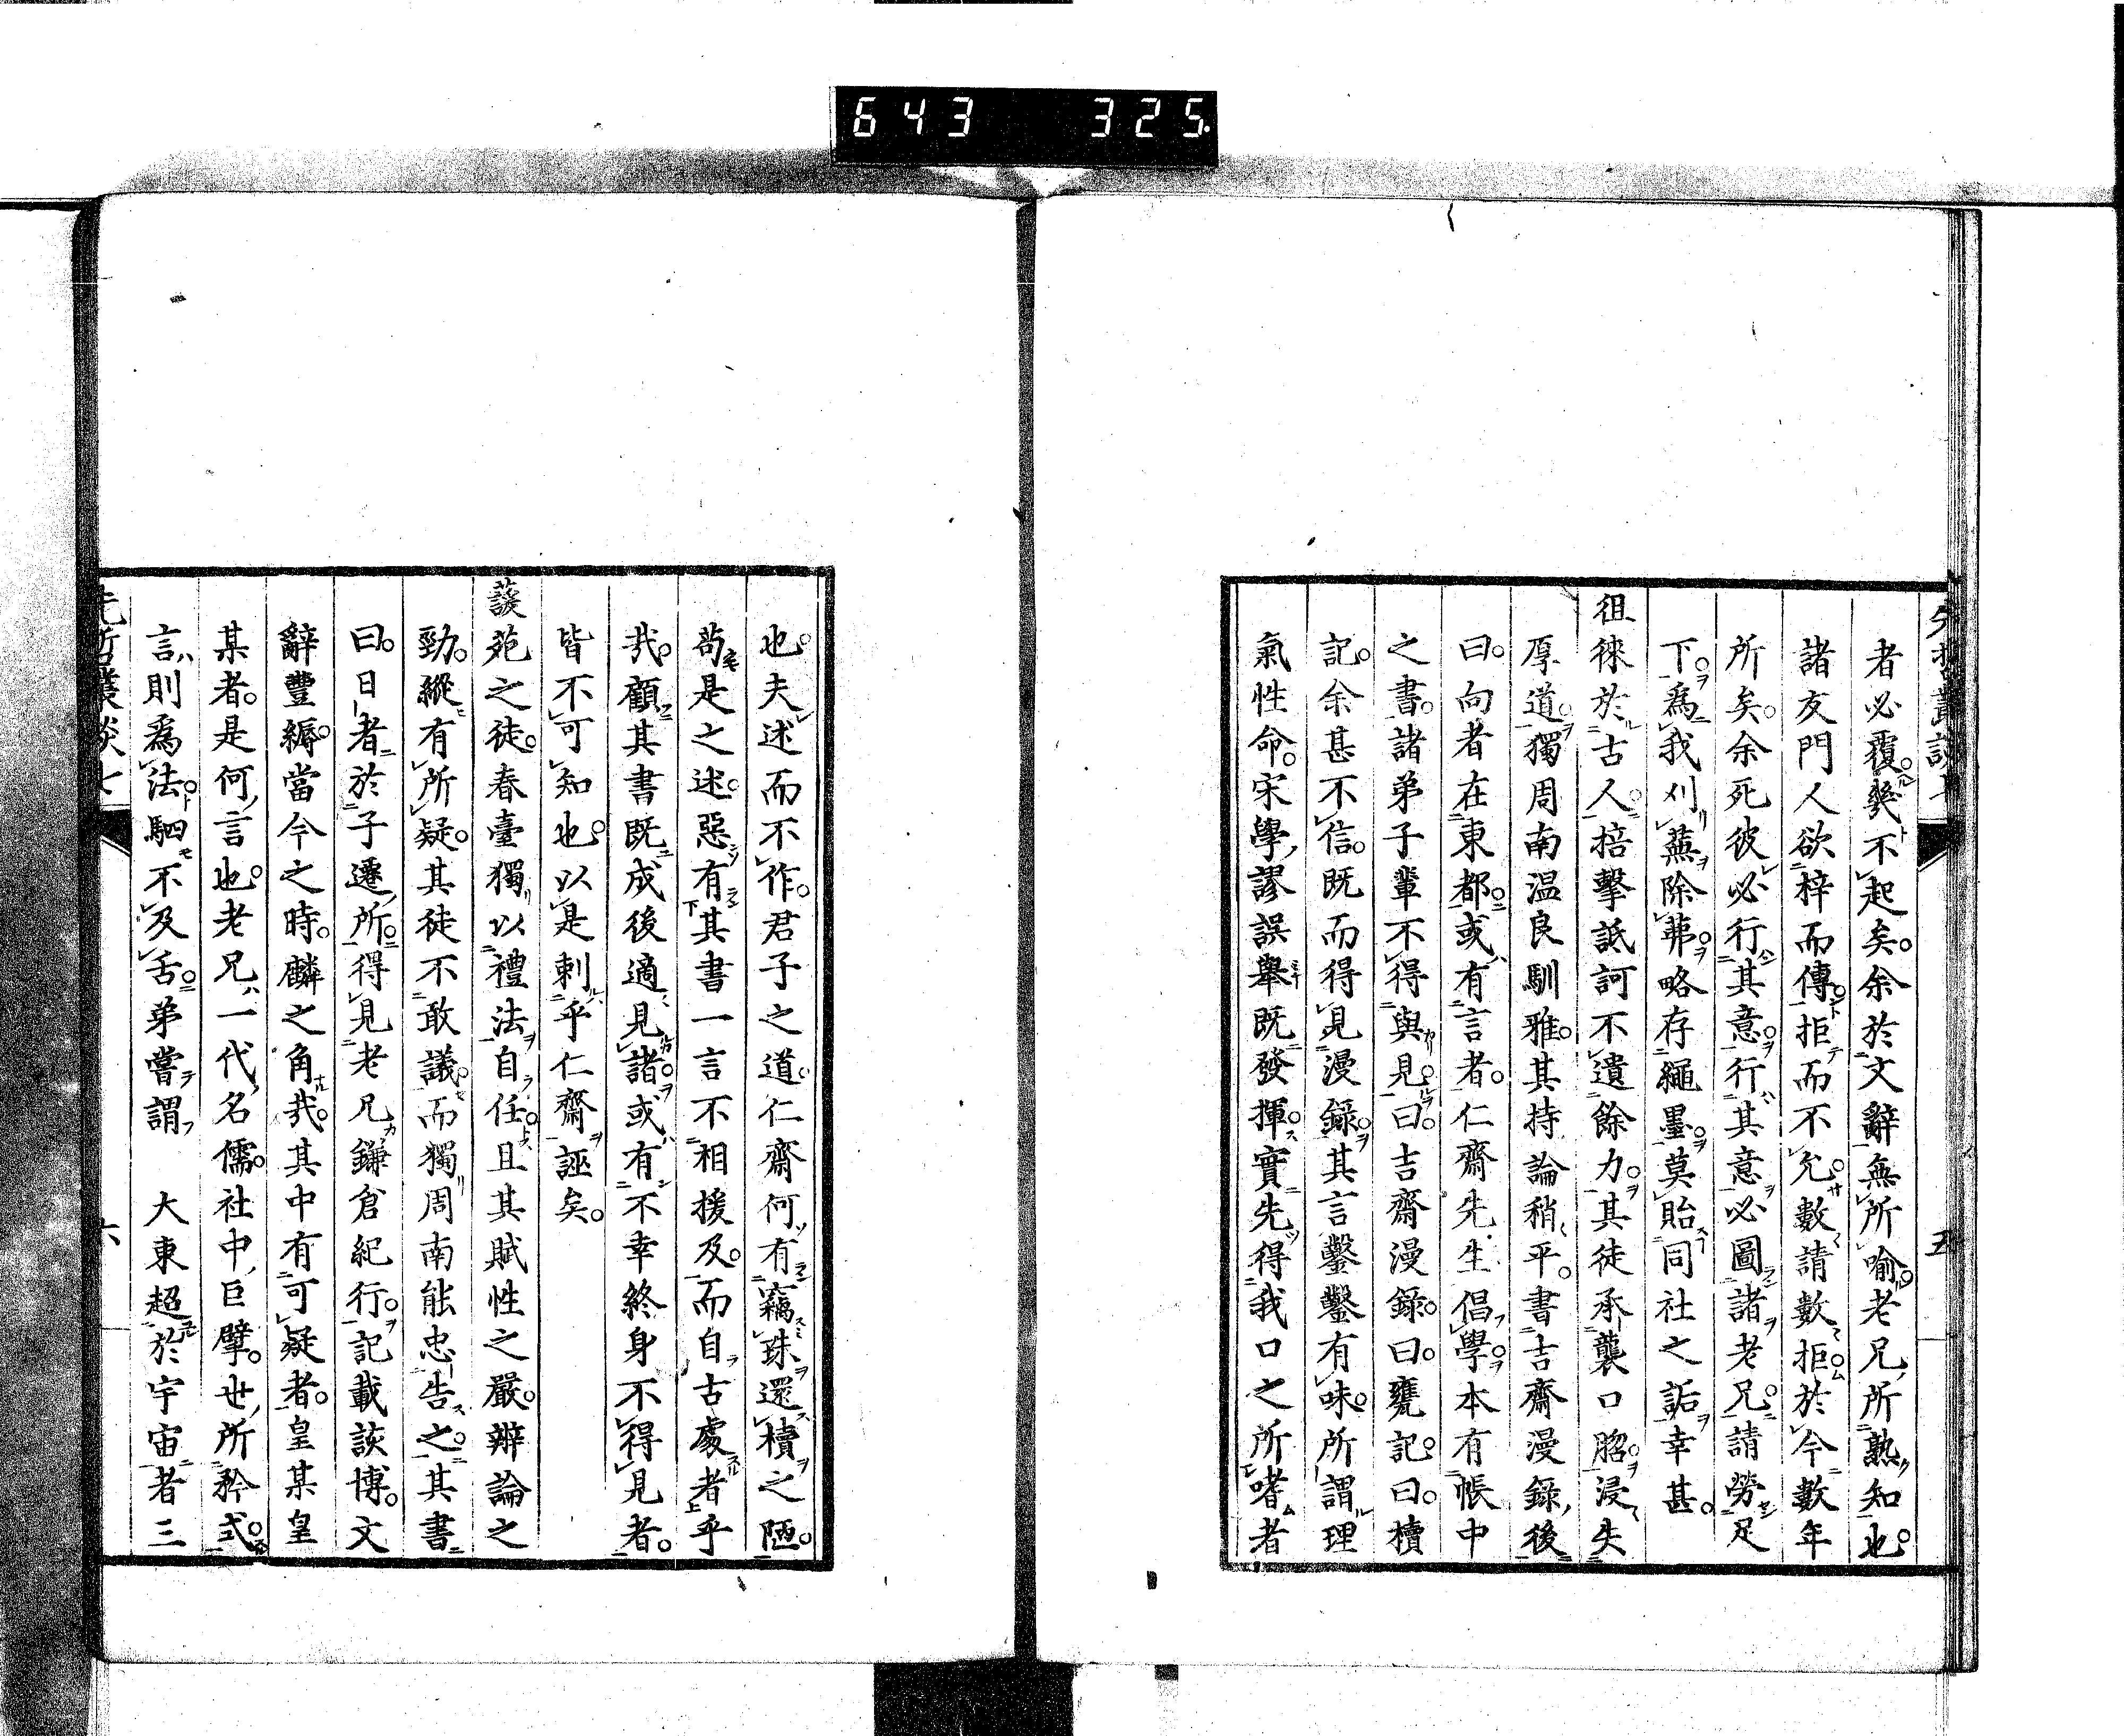 643 325.
者必覆甕不起矣。余於文辭無所喻。老兄所熟知也。
諸友門人欲梓而傳。拒而不允。數請數拒。於今數年
所矣。余死彼必行其意。行其意必圖諸老兄。請勞足
下。爲我刈蕪除茀。略存繩墨。莫貽同社之詬。幸甚。
徂徠於古人。掊擊詆訶不遺餘力。其徒承襲口脗。浸失
厚道。獨周南温良馴雅。其持論稍平。書吉齋漫錄後
曰。向者在東都。或有言者。仁齋先生倡學。本有帳中
之書。諸弟子輩不得與見。曰吉齋漫錄。曰甕記。曰櫝
記。余甚不信。既而得見漫錄。其言鑿鑿有味。所謂理
氣性命。宋學謬誤。舉既發揮。實先得我口之所嗜者
五
也。夫述而不作。君子之道。仁齋何有竊珠還櫝之陋。
茍是之述。惡有其書一言不相援及。而自古處者乎
哉。顧其書既成後適見諸。或有不幸終身不得見者。
皆不可知也。以是刺乎仁齋誣矣。
蘐苑之徒。春臺獨以禮法自任。且其賦性之嚴。辨論之
勁。縱有所疑。其徒不敢議。而獨周南能忠告之。其書
曰。日者於子遷所。得見老兄鎌倉紀行。記載該博。文
辭豐縟。當今之時。麟之角哉。其中有可疑者。皇某皇
某者。是何言也。老兄一代名儒。社中巨擘。世所矜式。
言則爲法。駟不及舌。弟嘗謂 大東超於宇宙者三
先哲叢談七
六